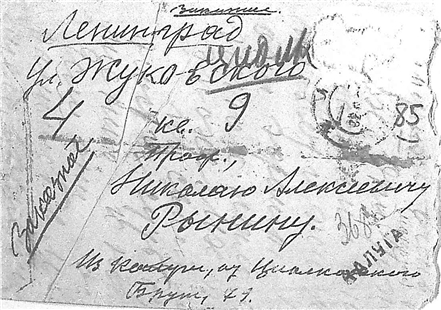 Заказное.
Ленинград
ул. Жуковского
4 кв. 9
Проф.,
Николаю Алексеевичу
Рынину.
Заказное
85
КАЛУГА
Из Калуги, от Циолковского
Брут, 79.